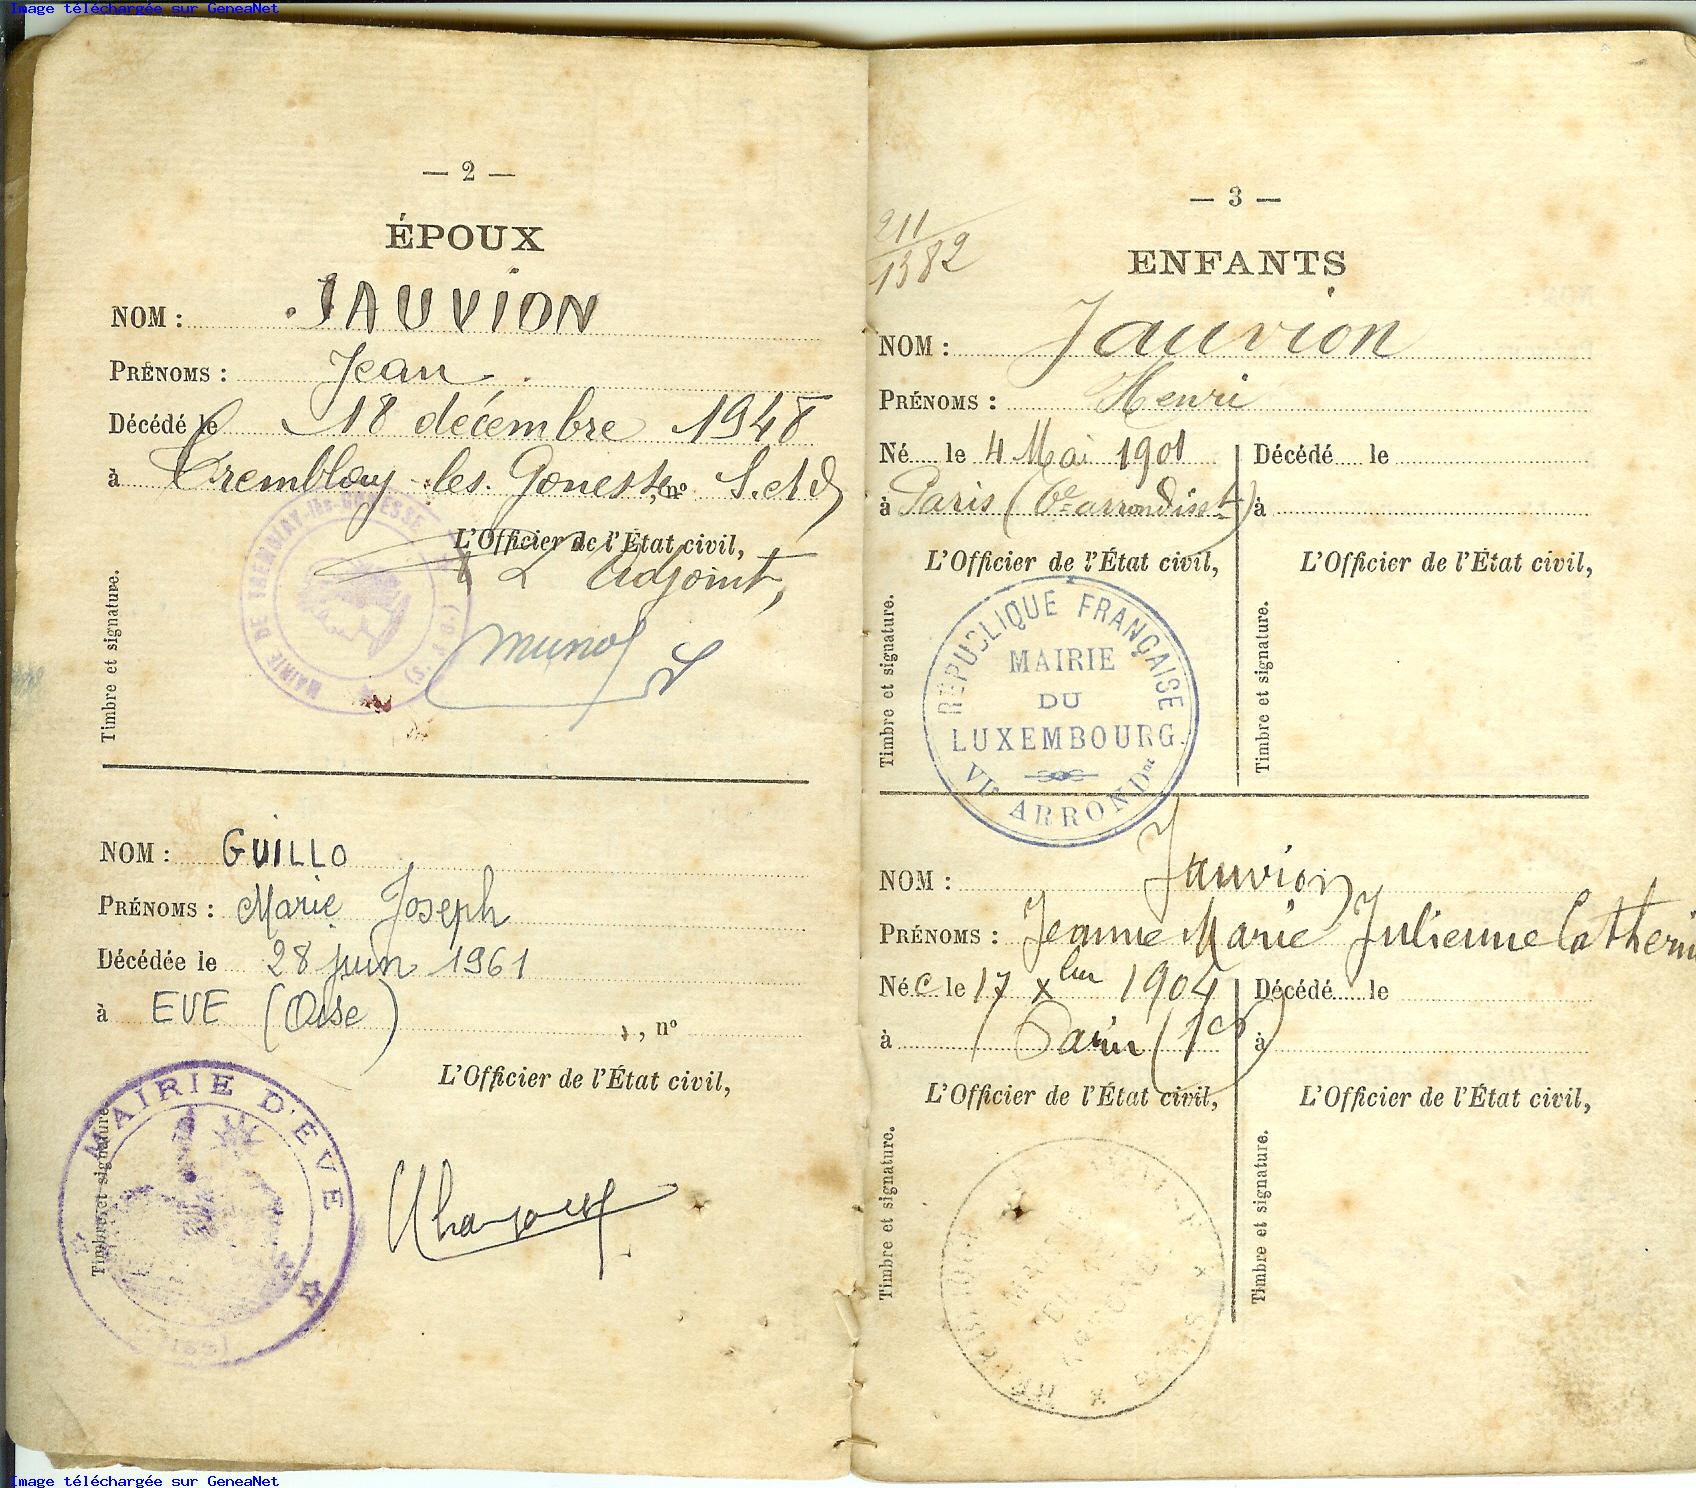 Image téléchargée sur GeneaNet
— 2 —
ÉPOUX
NOM : JAUVION
PRÉNOMS : Jean
Décédé le 18 décembre 1948
à Tremblay-les-Gonesse, nº S. et O
L'Officier de l'État civil,
L'Adjoint,
Timbre et signature.
MAIRIE DE TREMBLAY-lès-GONESSE
NOM : GUILLO
PRÉNOMS : Marie Joseph
Décédée le 28 juin 1961
à EVE (Oise) , nº
L'Officier de l'État civil,
Timbre et signature.
MAIRIE D'EVE
— 3 —
211
1382
ENFANTS
NOM : Jauvion
PRÉNOMS : Henri
Né le 4 Mai 1901
à Paris (6e arrondisst)
L'Officier de l'État civil,
Timbre et signature.
RÉPUBLIQUE FRANÇAISE
MAIRIE
DU
LUXEMBOURG
VIe ARRONDt
Décédé le
à
L'Officier de l'État civil,
Timbre et signature.
NOM : Jauvion
PRÉNOMS : Jeanne Marie Julienne Catherin
Née le 17 Xbre 1904
à Paris (1er)
L'Officier de l'État civil,
Timbre et signature.
Décédé le
à
L'Officier de l'État civil,
Timbre et signature.
Image téléchargée sur GeneaNet